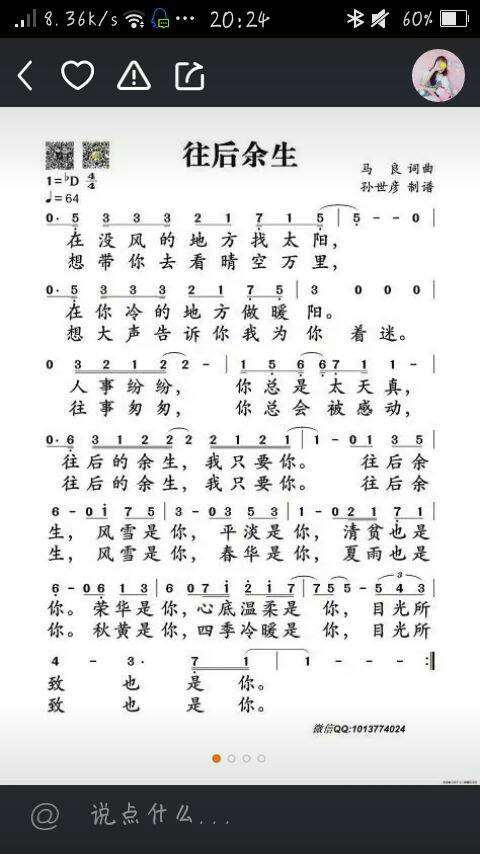 8.36K/s 20:24 60%
往后余生
1=♭D 4/4
♩=64
马 良 词曲
孙世彦 制谱
0· 5 3 3 3 2 1 7 1 5 | 5 - - 0 |
在没风的地方找太阳，
想带你去看晴空万里，
0· 5 3 3 3 2 1 2 7 5 | 3 0 0 0 |
在你冷的地方做暖阳。
想大声告诉你我为你着迷。
0 3 2 1 2 2 - | 1 5 6 6 7 1 1 |
人事纷纷，你总是太天真，
往事匆匆，你总会被感动，
0· 6 3 1 2 2 2 2 1 2 1 | 1 - 0 1 3 5 |
往后的余生，我只要你。往后余
往后的余生，我只要你。往后余
6 - 0 1 7 5 | 3 - 0 3 5 3 | 1 - 0 0 2 1 7 1 |
生，风雪是你，平淡是你，清贫也是
生，风雪是你，春华是你，夏雨也是
6 - 0 6 1 3 | 6 0 7 1 2 1 | 7 5 5 - 5 4 3 |
你。荣华是你，心底温柔是你，目光所
你。秋黄是你，四季冷暖是你，目光所
4 - 3· 7 1 | 1 - - - :|
致也是你。
致也是你。
微信QQ:1013774024
@ 说点什么...